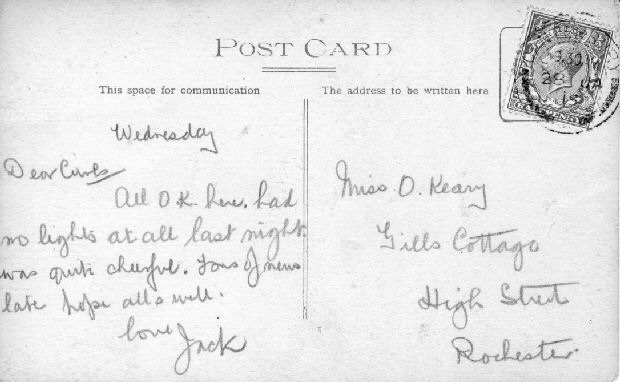 POST CARD
This space for communication
The address to be written here
Wednesday
Dear Curls
All O.K. here. had
no lights at all last night
was quite cheerful. Tons of news
late hope all's well.
love Jack
Miss O. Keary
Gills Cottage
High Street
Rochester.